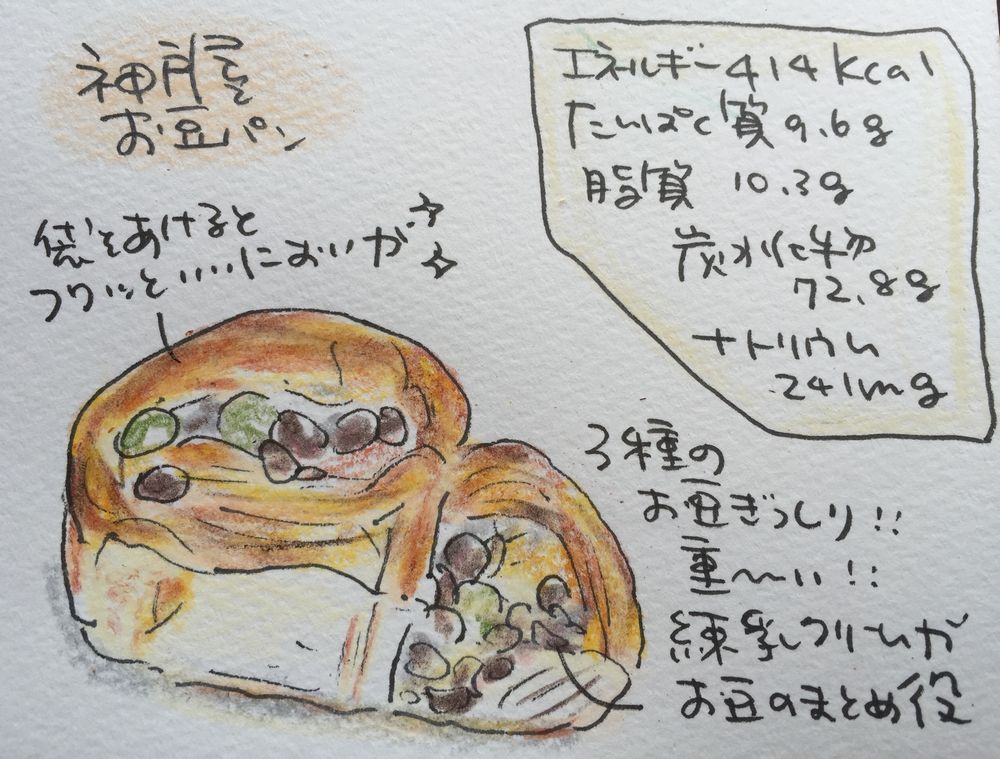 神戸屋
お豆パン
袋をあけると
フワッといいにおいが
エネルギー 414 kcal
たんぱく質 9.6g
脂質 10.3g
炭水化物
72.8g
ナトリウム
241mg
3種の
お豆ぎっしり!!
重〜い!!
練乳クリームが
お豆のまとめ役